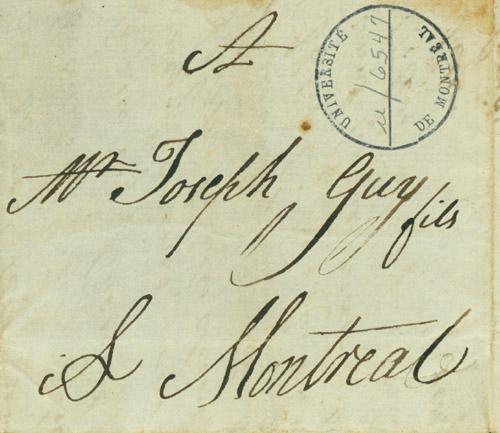 A
UNIVERSITÉ
DE MONTRÉAL
u/6547
Mr Joseph Guy fils
A Montreal